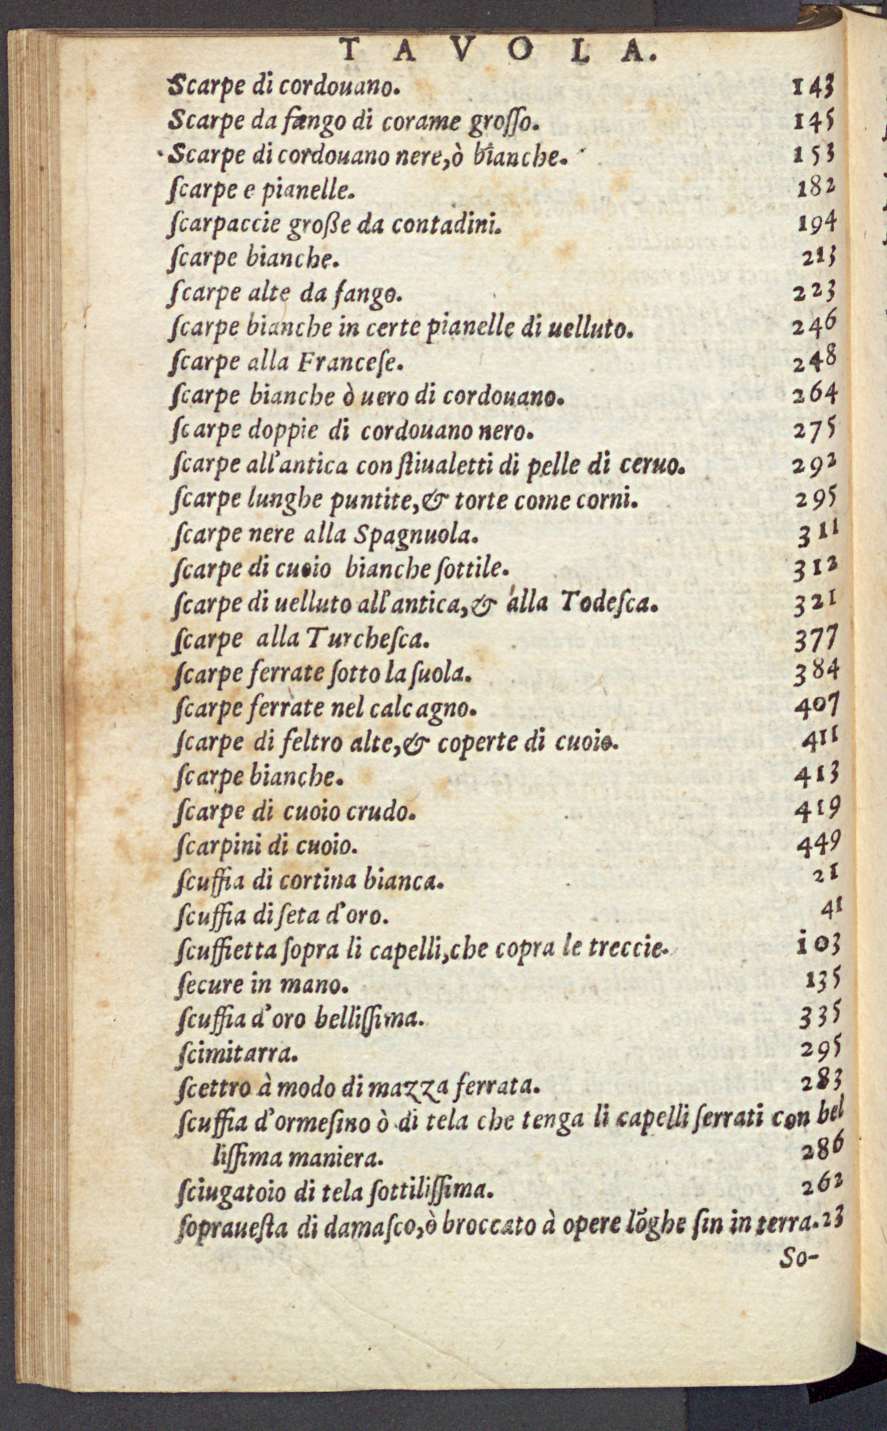 TAVOLA.
Scarpe di cordouano. 143
Scarpe da fango di corame groſſo. 145
Scarpe di cordouano nere, ò bianche. 153
ſcarpe e pianelle. 182
ſcarpaccie große da contadini. 194
ſcarpe bianche. 213
ſcarpe alte da fango. 223
ſcarpe bianche in certe pianelle di uelluto. 246
ſcarpe alla Franceſe. 248
ſcarpe bianche ò uero di cordouano. 264
ſcarpe doppie di cordouano nero. 275
ſcarpe all'antica con ſtiualetti di pelle di ceruo. 292
ſcarpe lunghe puntite, & torte come corni. 295
ſcarpe nere alla Spagnuola. 311
ſcarpe di cuoio bianche ſottile. 312
ſcarpe di uelluto all'antica, & alla Todeſca. 321
ſcarpe alla Turcheſca. 377
ſcarpe ferrate ſotto la ſuola. 384
ſcarpe ferrate nel calcagno. 407
ſcarpe di feltro alte, & coperte di cuoio. 411
ſcarpe bianche. 413
ſcarpe di cuoio crudo. 419
ſcarpini di cuoio. 449
ſcuffia di cortina bianca. 21
ſcuffia di ſeta d'oro. 41
ſcuffietta ſopra li capelli, che copra le treccie. 103
ſecure in mano. 135
ſcuffia d'oro belliſſima. 335
ſcimitarra. 295
ſcettro à modo di mazza ferrata. 283
ſcuffia d'ormeſino ò di tela che tenga li capelli ſerrati con bel
liſſima maniera. 286
ſciugatoio di tela ſottiliſſima. 262
ſoprauesta di damaſco, ò broccato à opere lõghe ſin in terra. 23
So-